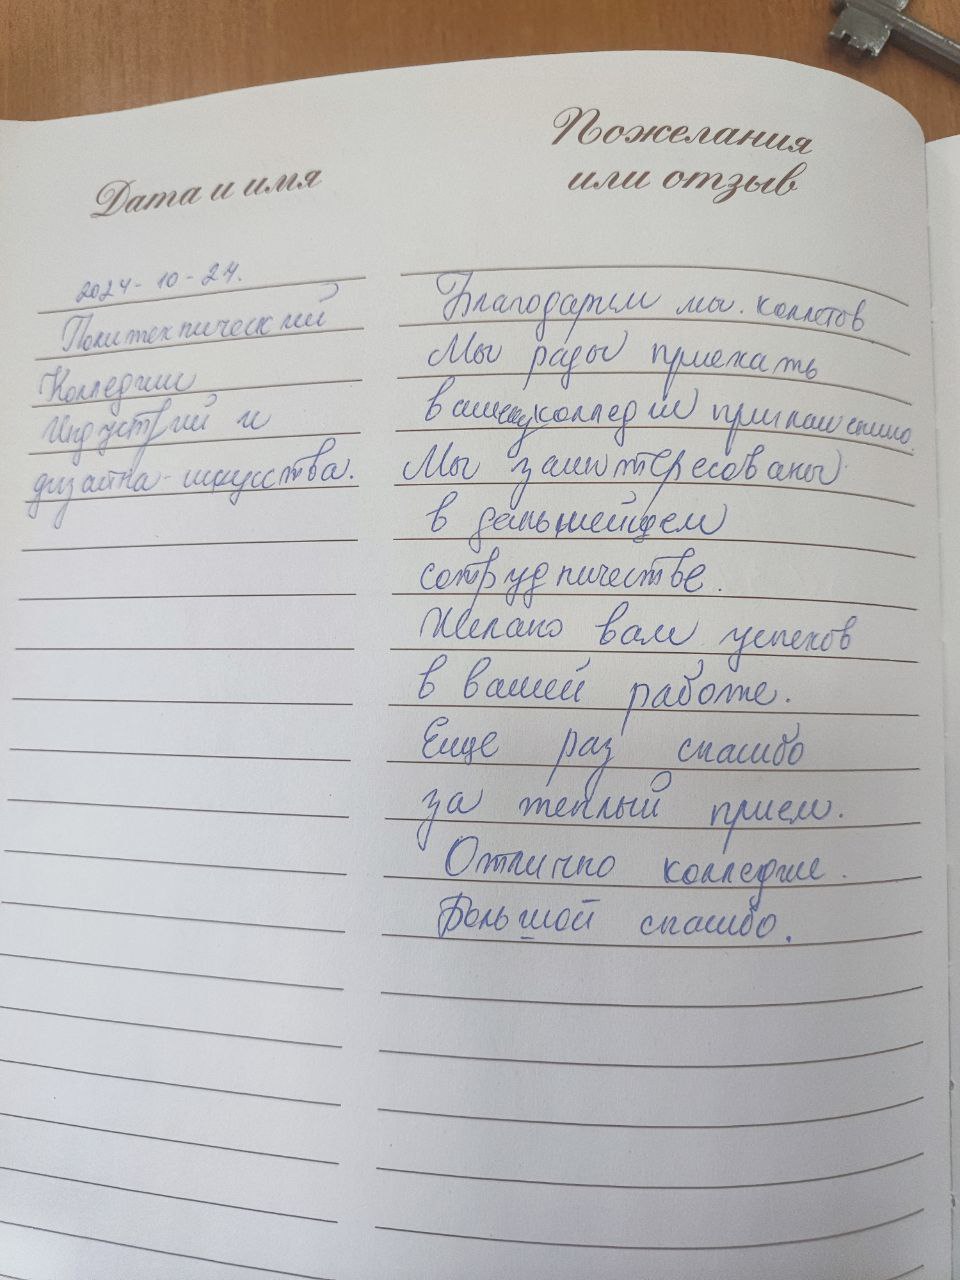 Дата и имя
2024-10-24.
Политехнический
Колледжи
Индустрий и
дизайна-искусства.
Пожелания
или отзыв
Благодарим мы.
Мы рады приехать
колледжи
Мы заинтересованы
в дальнейщем
сотрудничестве.
Желаю вам успехов
в вашей работе.
Еще раз спасибо
за теплый прием.
Отлично колледже.
Большой спасибо.